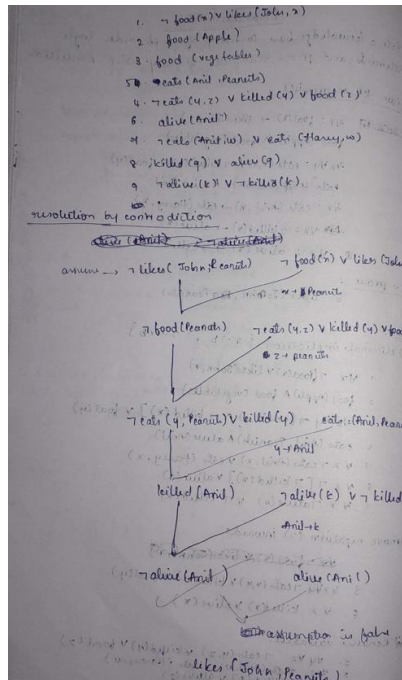 1. ¬ food(x) ∨ likes (John, x)
2. food (Apple)
3. food (vegetables)
5 eats (Anil, Peanuts)
4. ¬eats (y, z) ∨ killed(y) ∨ food (z)
6. alive (Anil)
7. ¬eats (Anil, w) ∨ eats (Harry, w)
8. killed (g) ∨ alive (g)
9. ¬alive (k) ∨ ¬killed (k)
resolution by contradiction
alive (Anil) ¬alive (Anil)
assume → ¬likes (John, Peanuts) ¬food(x) ∨ likes (John
x → Peanuts
¬food (Peanuts) ¬eats (y, z) ∨ killed (y) ∨ foo
z → peanuts
¬eats (y, Peanuts) ∨ killed (y) eats (Anil, Pean
y → Anil
killed (Anil) ¬alive (k) ∨ ¬killed
Anil → k
¬alive (Anil) alive (Anil)
assumption is false
likes (John, Peanuts)